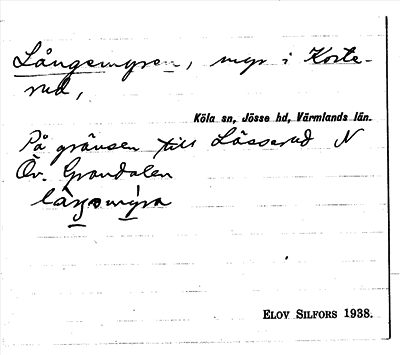 Långemyren, myr i Korte-
rud,
Köla sn, Jösse hd, Värmlands län.
På gränsen till Lässerud N
Öv. Grandalen
ELOV SILFORS 1938.